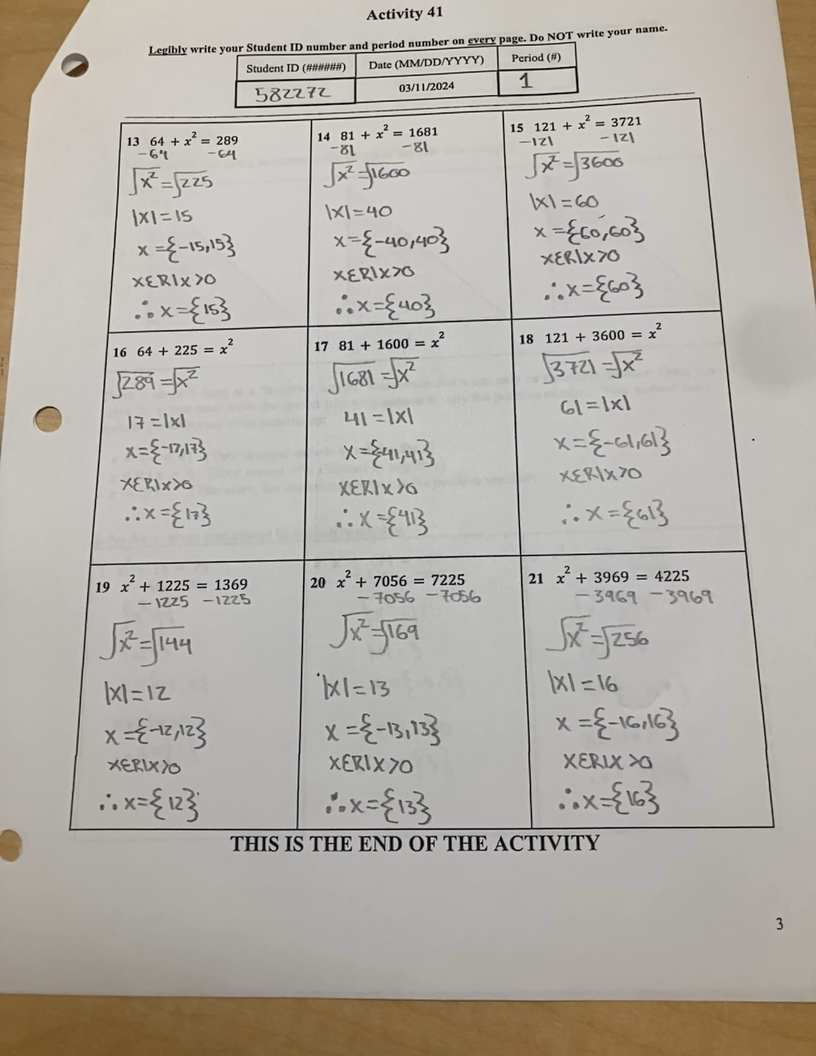 Activity 41
Legibly write your Student ID number and period number on every page. Do NOT write your name.
Student ID (######) Date (MM/DD/YYYY) Period (#)
582272 03/11/2024 1
13 64 + x² = 289
-64 -64
√x² = √225
|x| = 15
x = {-15,15}
xεR|x>0
∴ x = {15}
14 81 + x² = 1681
-81 -81
√x² = √1600
|x| = 40
x = {-40,40}
xεR|x>0
∴ x = {40}
15 121 + x² = 3721
-121 -121
√x² = √3600
|x| = 60
x = {60,60}
xεR|x>0
∴ x = {60}
16 64 + 225 = x²
√289 = √x²
17 = |x|
x = {-17,17}
xεR|x>0
∴ x = {17}
17 81 + 1600 = x²
√1681 = √x²
41 = |x|
x = {41,41}
xεR|x>0
∴ x = {41}
18 121 + 3600 = x²
√3721 = √x²
61 = |x|
x = {-61,61}
xεR|x>0
∴ x = {61}
19 x² + 1225 = 1369
-1225 -1225
√x² = √144
|x| = 12
x = {-12,12}
xεR|x>0
∴ x = {12}
20 x² + 7056 = 7225
-7056 -7056
√x² = √169
|x| = 13
x = {-13,13}
xεR|x>0
∴ x = {13}
21 x² + 3969 = 4225
-3969 -3969
√x² = √256
|x| = 16
x = {-16,16}
xεR|x>0
∴ x = {16}
THIS IS THE END OF THE ACTIVITY
3